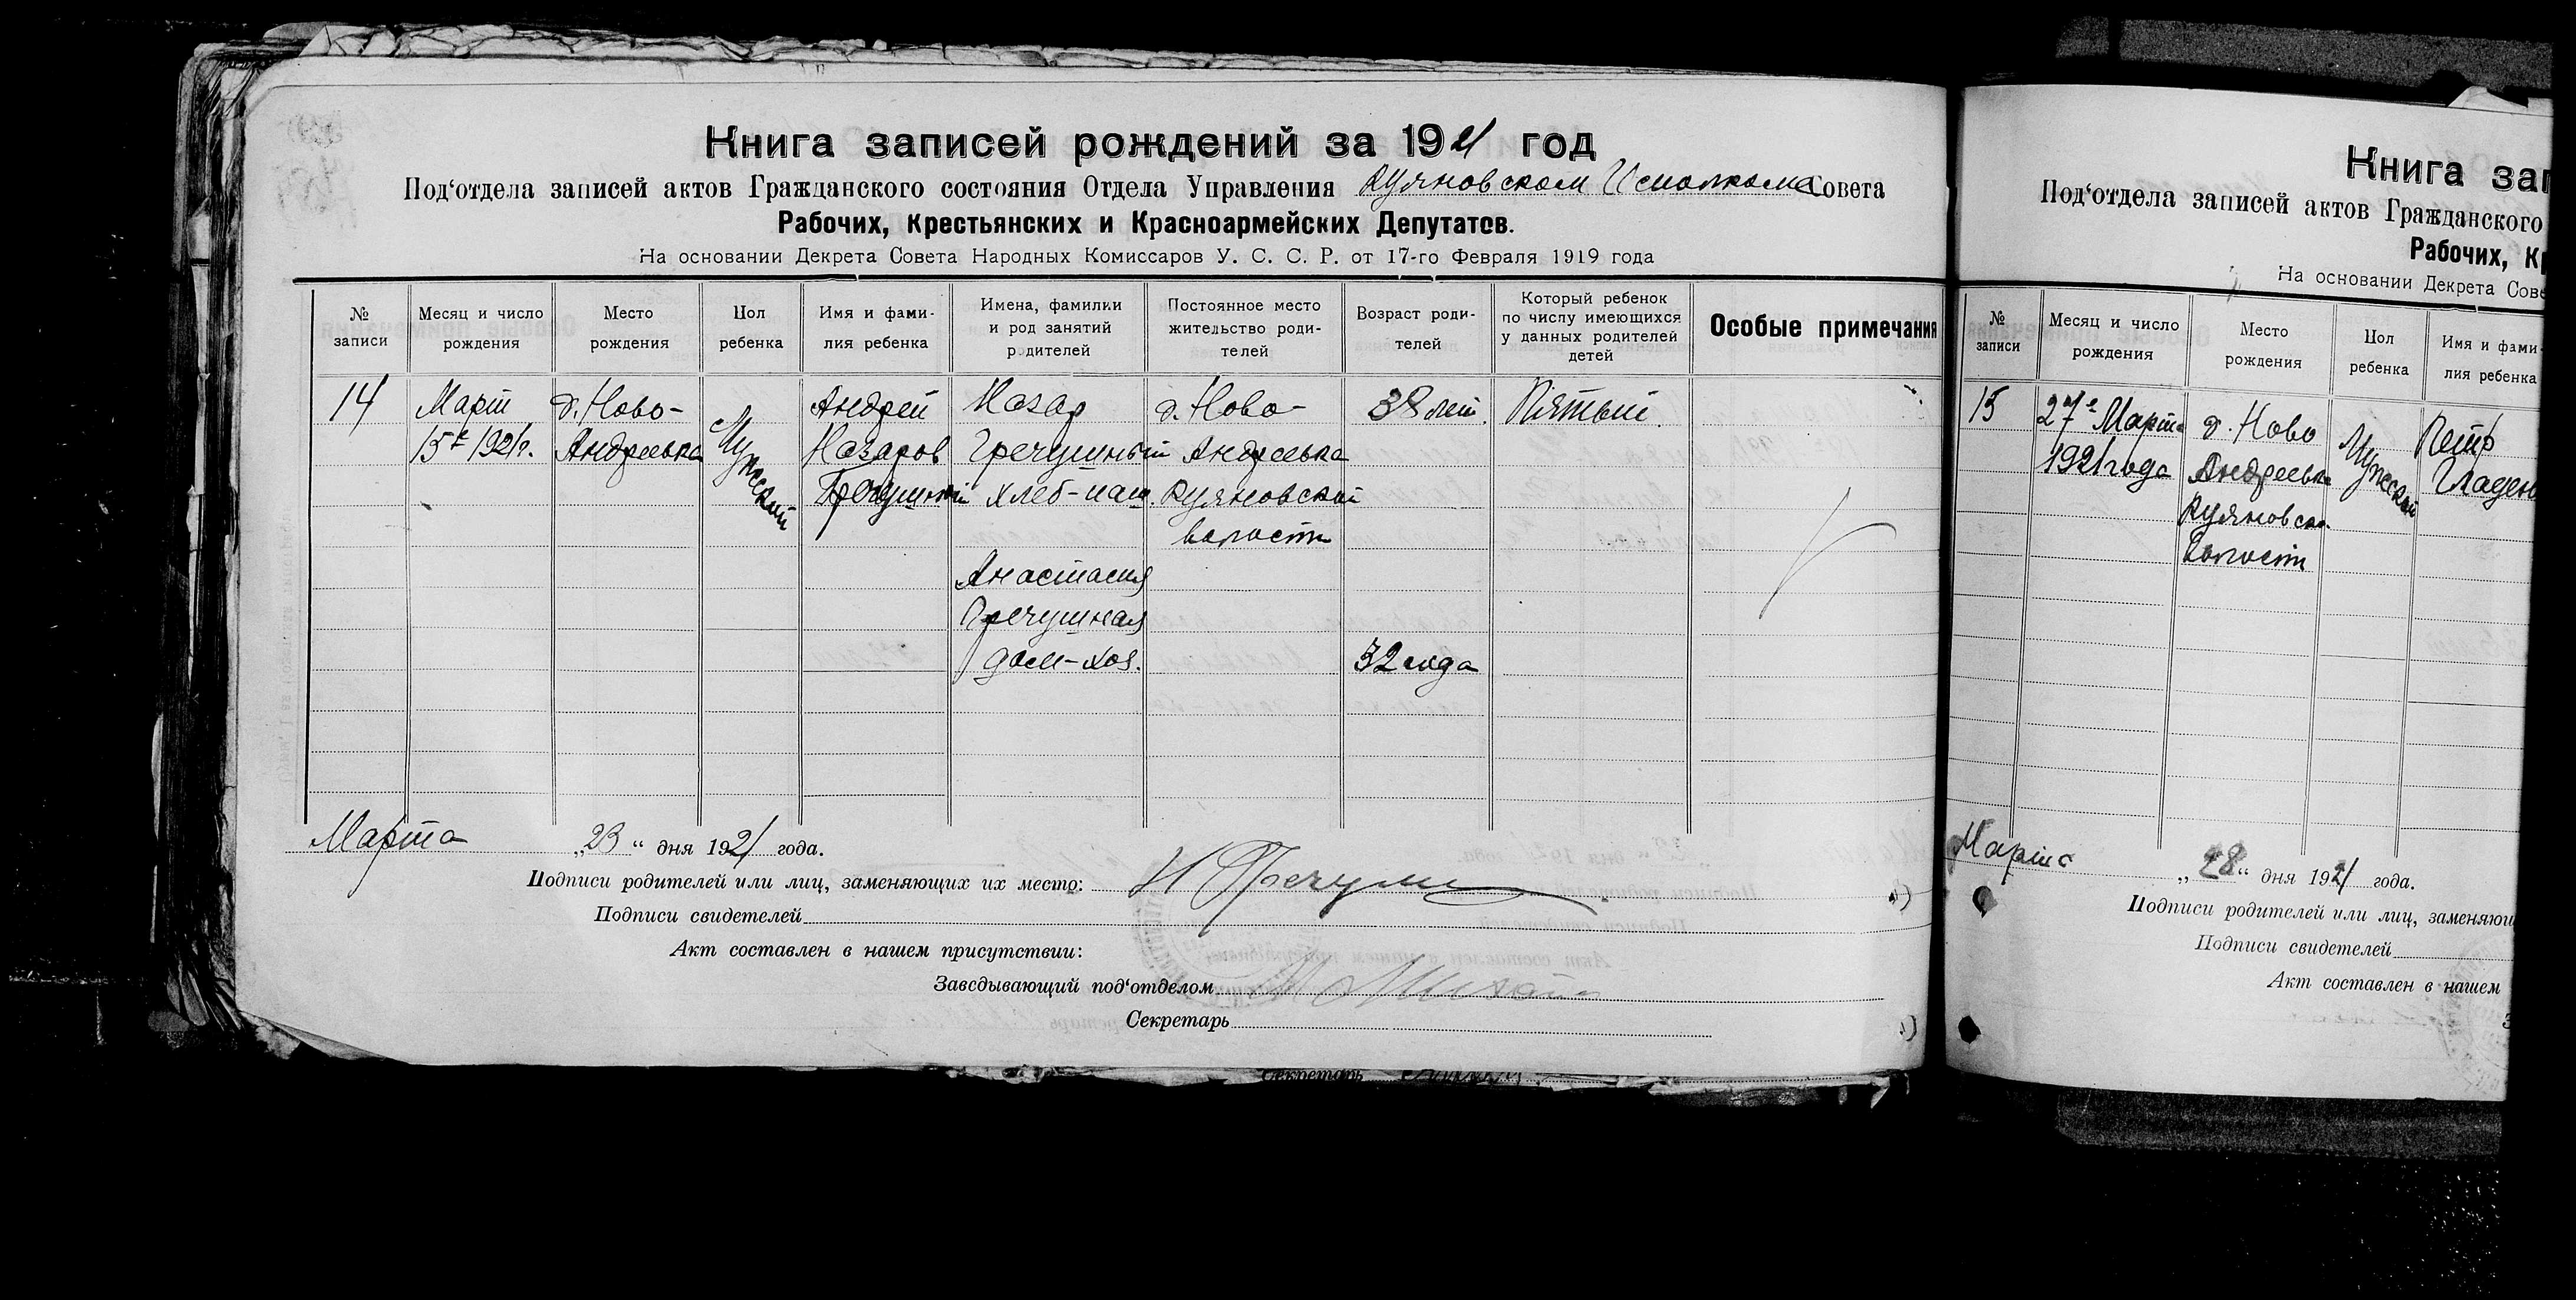 Книга записей рождений за 1921 год
Под‘отдела записей актов Гражданского состояния Отдела Управления Куяновском Исполкома Совета
Рабочих, Крестьянских и Красноармейских Депутатов.
На основании Декрета Совета Народных Комиссаров У. С. С. Р. от 17-го Февраля 1919 года
№ записи
Месяц и число рождения
Место рождения
Пол ребенка
Имя и фами-
лия ребенка
Имена, фамилии
и род занятий
родителей
Постоянное место
жительство роди-
телей
Возраст роди-
телей
Который ребенок
по числу имеющихся
у данных родителей
детей
Особые примечания
14
Март
15е 1921г.
д. Ново-
Андреевка
Мужский
Андрей
Назаров
Гречушный
Назар
Гречушный
хлеб-паш.
Анастасия
Гречушная
дом-хоз.
д. Ново-
Андреевка
Куяновской
волости
38 лет.
32 года
Пятый.
Марта „23“ дня 1921 года.
Подписи родителей или лиц, заменяющих их место: Н Гречушн
Подписи свидетелей
Акт составлен в нашем присутствии:
Заведывающий под‘отделом
Секретарь
Секретарь
Книга зап
Под‘отдела записей актов Гражданского
Рабочих, Кр
На основании Декрета Сове
№
записи
Месяц и число
рождения
Место
рождения
Пол
ребенка
Имя и фами-
лия ребенка
15
27е Марта
1921 года
д. Ново
Андреевка
Куяновско
волости
Мужской
Петр
Гладен
Марта „28“ дня 1921 года.
Подписи родителей или лиц, заменяющ
Подписи свидетелей
Акт составлен в нашем